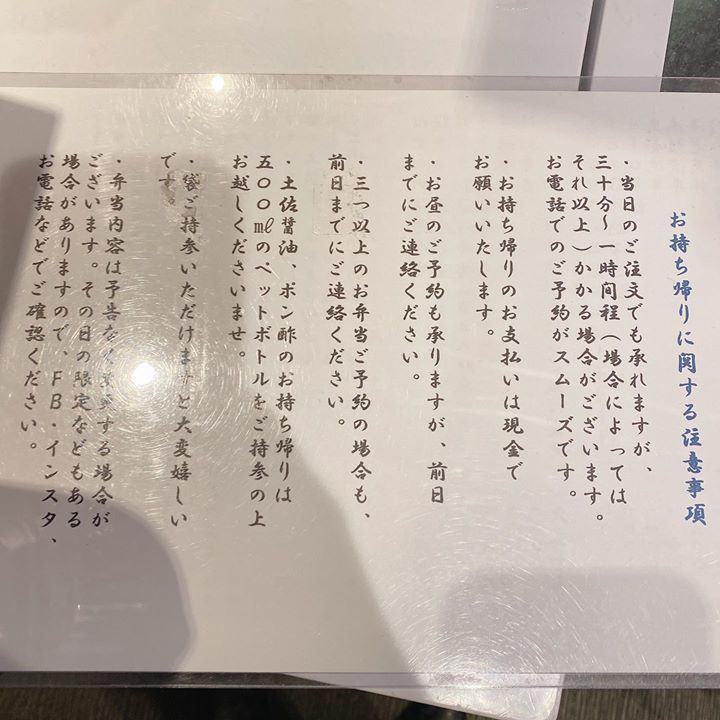 お持ち帰りに関する注意事項
・当日のご注文でも承れますが、
三十分～一時間程（場合によっては
それ以上）かかる場合がございます。
お電話でのご予約がスムーズです。
・お持ち帰りのお支払いは現金で
お願いいたします。
・お昼のご予約も承りますが、前日
までにご連絡ください。
・三つ以上のお弁当ご予約の場合も、
前日までにご連絡ください。
・土佐醤油、ポン酢のお持ち帰りは
五〇〇㎖のペットボトルをご持参の上
お越しくださいませ。
・袋ご持参いただけますと大変嬉しい
です。
・弁当内容は予告なく変更する場合が
ございます。その日の限定などもある
場合がありますので、FB・インスタ、
お電話などでご確認ください。